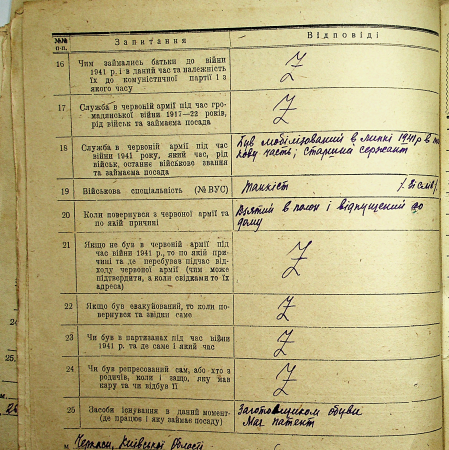 №№ п.п.
Запитання
Відповіді
16 Чим займались батьки до війни
1941 р. і в даний час та належність
їх до комуністичної партії і з
якого часу
Z
17 Служба в червоній армії під час гро-
мадянської війни 1917—22 років,
рід військ та займаєма посада
Z
18 Служба в червоній армії під час
війни 1941 року, який час, рід
військ, останнє військове звання
та займаєма посада
Був мобілізований в липні 1941 р в
кову часть; старший сержант
19 Військова спеціальність (№ ВУС)
Танкіст
20 Коли повернувся з червоної армії та
по якій причині
Взятий в полон і відпущений до
дому
21 Якщо не був в червоній армії під
час війни 1941 р., то по якій при-
чині та де перебував підчас від-
ходу червоної армії (чим може
підтвердити, а коли свідками то їх
адреса)
Z
22 Якщо був евакуйований, то коли по-
вернувся та звідки саме
Z
23 Чи був в партизанах під час війни
1941 р. та де саме і який час
Z
24 Чи був репресований сам, або хто з
родичів, коли і защо, яку мав
кару та чи відбув її
Z
25 Засоби існування в даний момент
(де працює і яку займає посаду)
Заготовщиком обуви
Має патент
м. Черкаси, Київської області
24
25.
м.